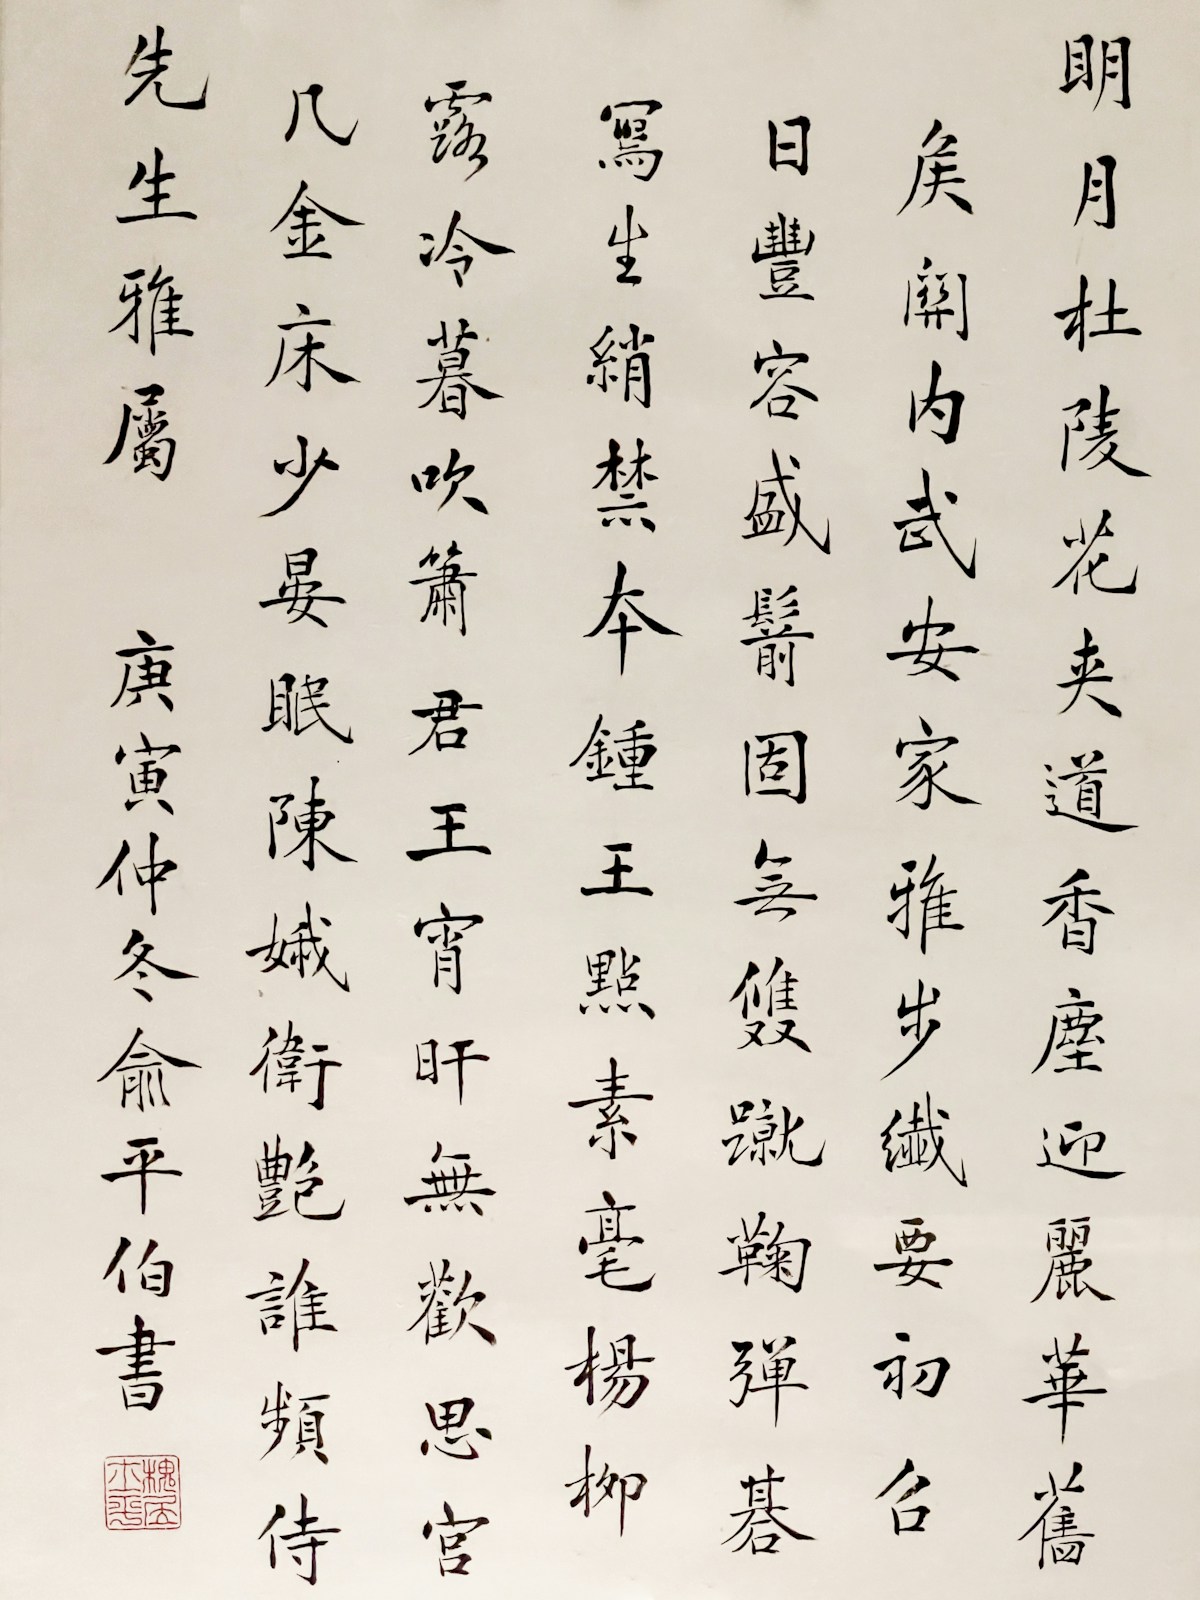 明月杜陵花夾道香塵迎麗華舊
矦關内武安家雅步纖要初召
日豐容盛鬋固無雙蹴鞠彈棊
寫生綃禁本鍾王點素毫楊柳
露冷暮吹簫君王宵旰無歡思宮
几金床少晏眠陳娥衛艷誰頻侍
先生雅屬
庚寅仲冬俞平伯書